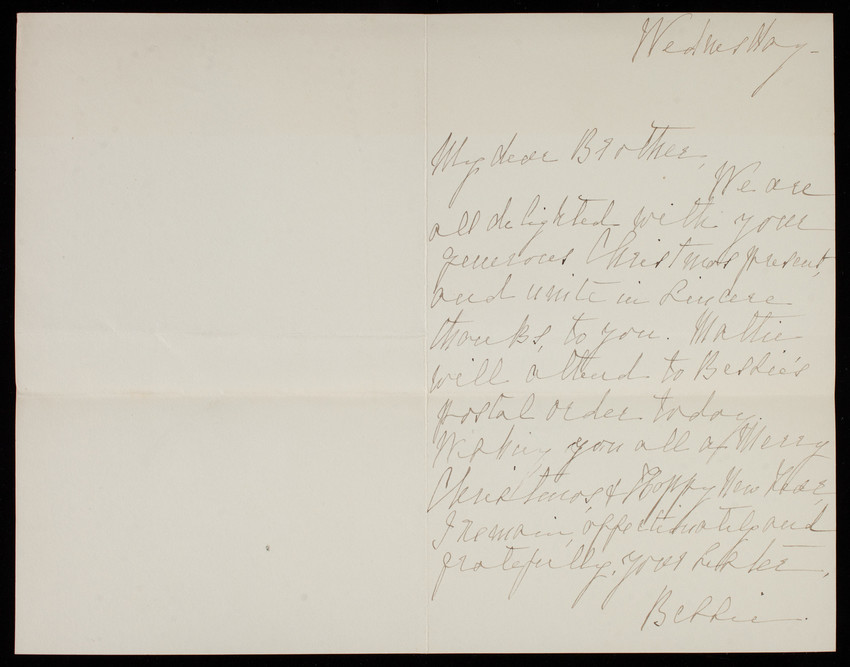 Wednesday -
My dear Brother,
We are
all delighted with your
generous Christmas present,
and unite in sincere
thanks, to you. Mattie
will attend to Bessie's
postal order today.
Wishing you all a Merry
Christmas & Happy New Year,
I remain, affectionately and
gratefully, your sister,
Bessie.